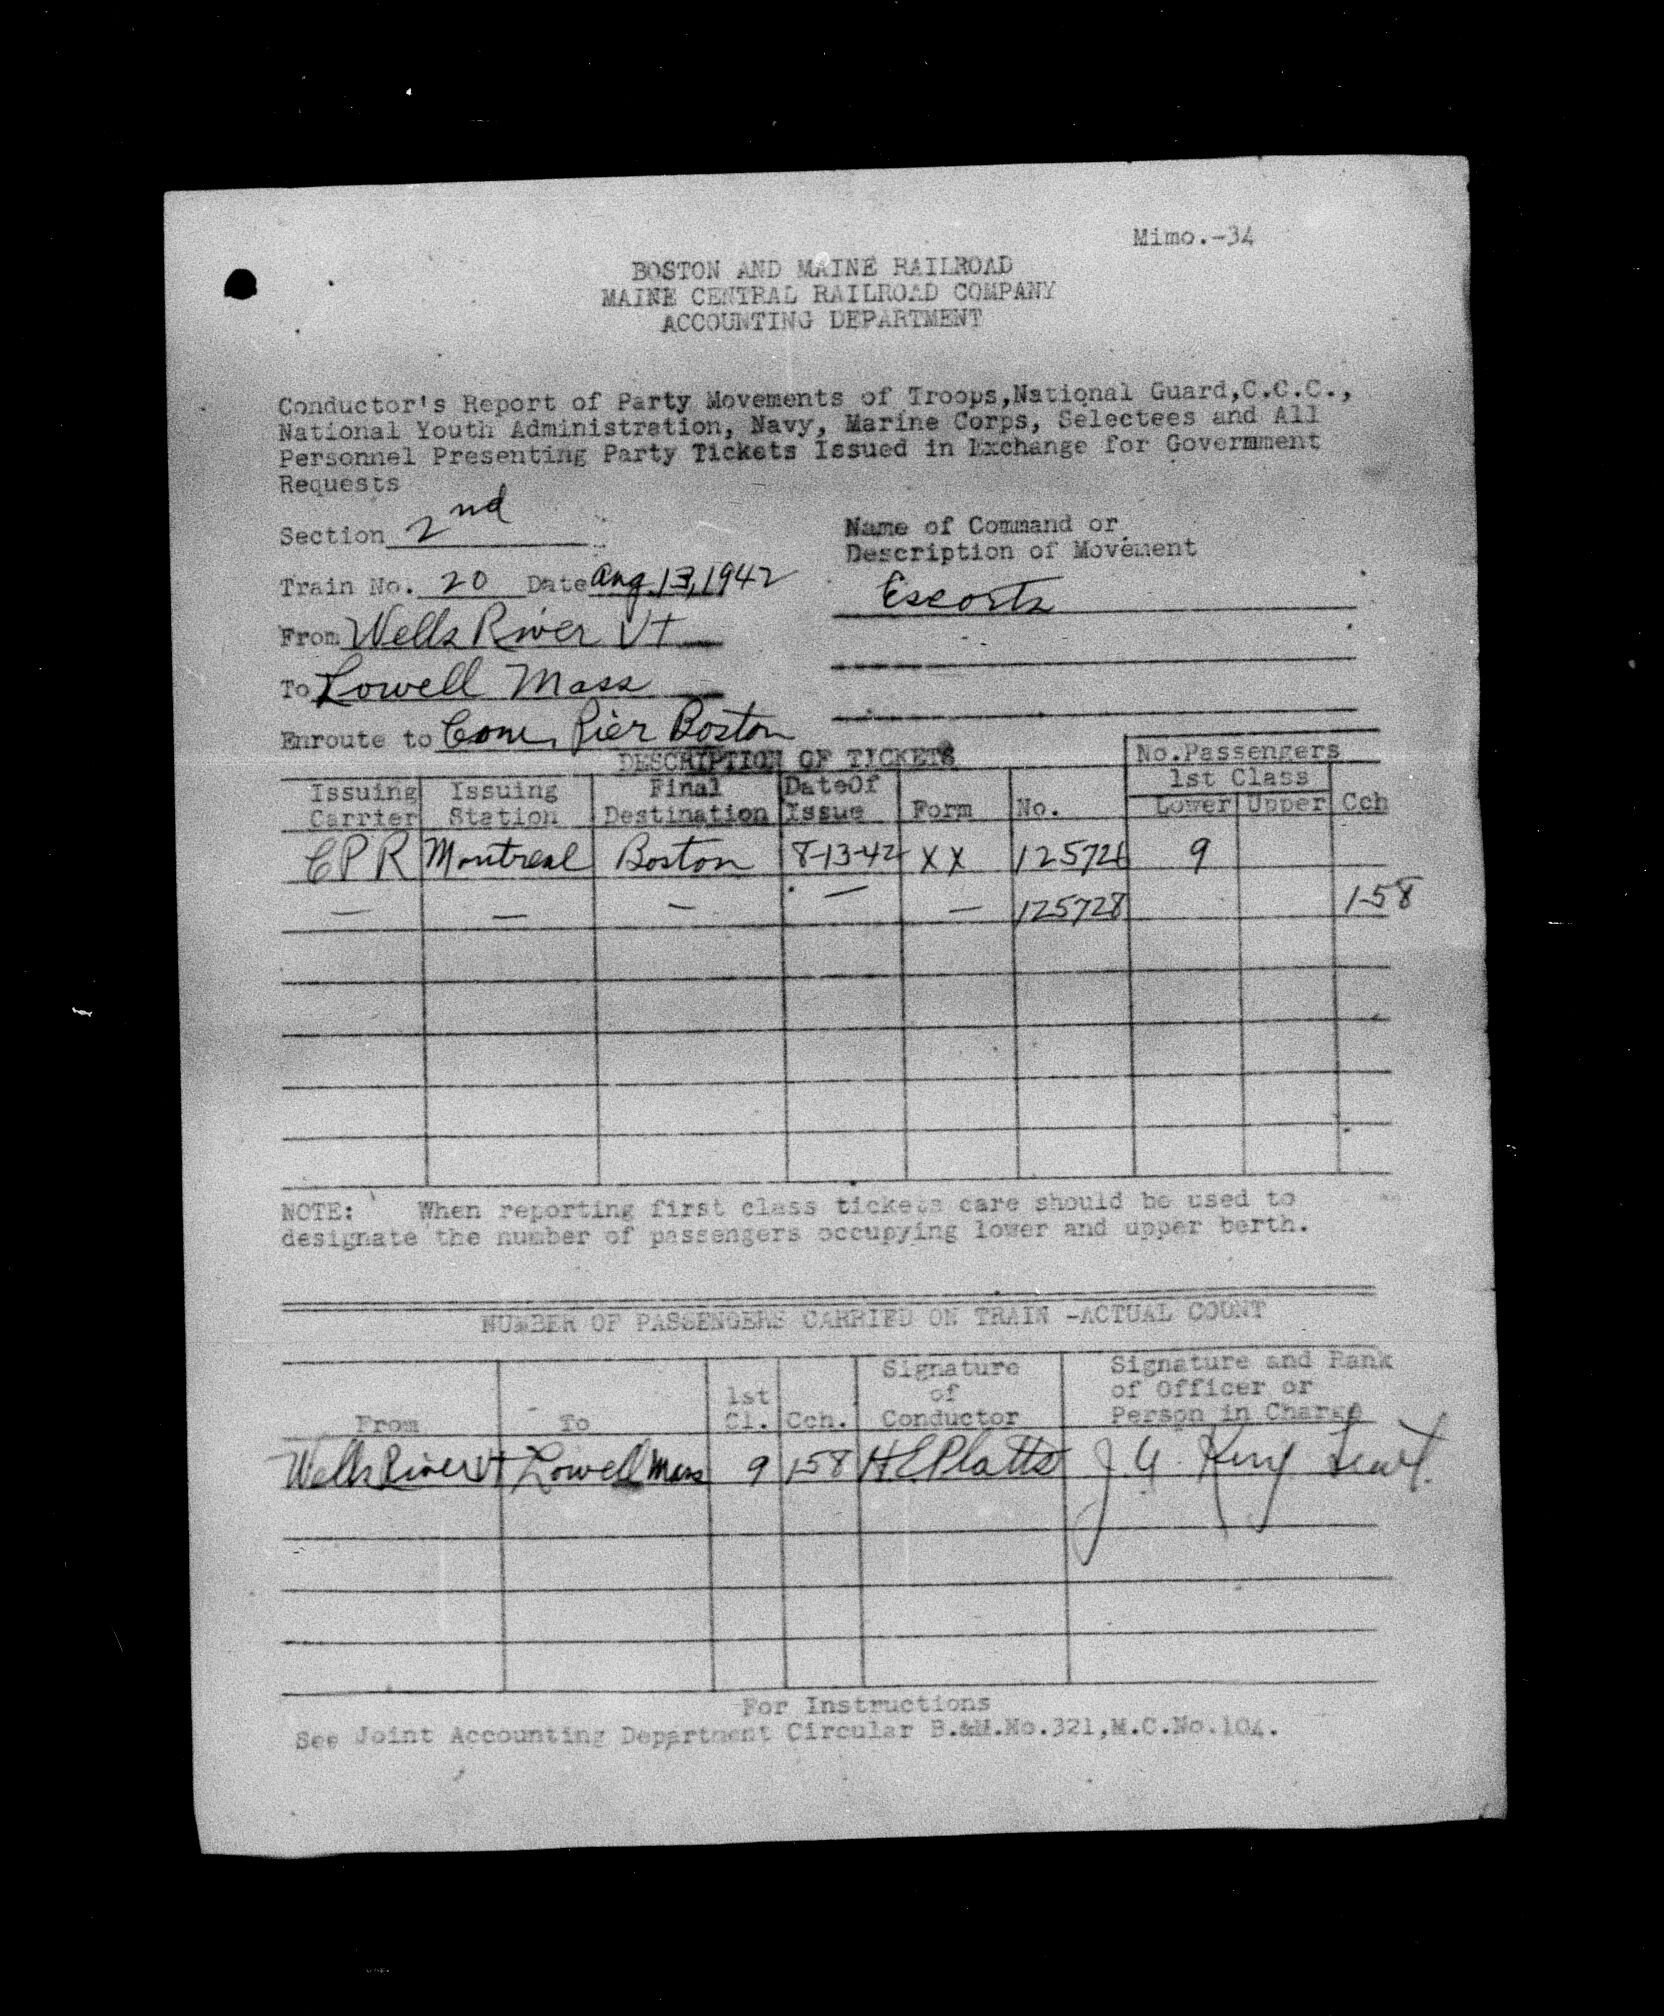 Mimo.-34
BOSTON AND MAINE RAILROAD
MAINE CENTRAL RAILROAD COMPANY
ACCOUNTING DEPARTMENT
Conductor's Report of Party Movements of Troops,National Guard,C.C.C.,
National Youth Administration, Navy, Marine Corps, Selectees and All
Personnel Presenting Party Tickets Issued in Exchange for Government
Requests
Section 2nd
Name of Command or
Description of Movement
Train No. 20 Date Aug. 13, 1942
Escorts
From Wells River Vt
To Lowell Mass
Enroute to Com. Pier Boston
DESCRIPTION OF TICKETS No.Passengers
Issuing Carrier Issuing Station Final Destination DateOf Issue Form No. 1st Class Lower Upper Cch
C P R Montreal Boston 8-13-42 X X 9
— — — — — 125728 158
NOTE: When reporting first class tickets care should be used to
designate the number of passengers occupying lower and upper berth.
NUMBER OF PASSENGERS CARRIED ON TRAIN -ACTUAL COUNT
From To 1st Cl. Cch. Signature of Conductor Signature and Rank of Officer or Person in Charge
Wells River Vt Lowell Mass 9 158 H E Platts King Lieut.
For Instructions
See Joint Accounting Department Circular B.&M.No.321,M.C.No.104.